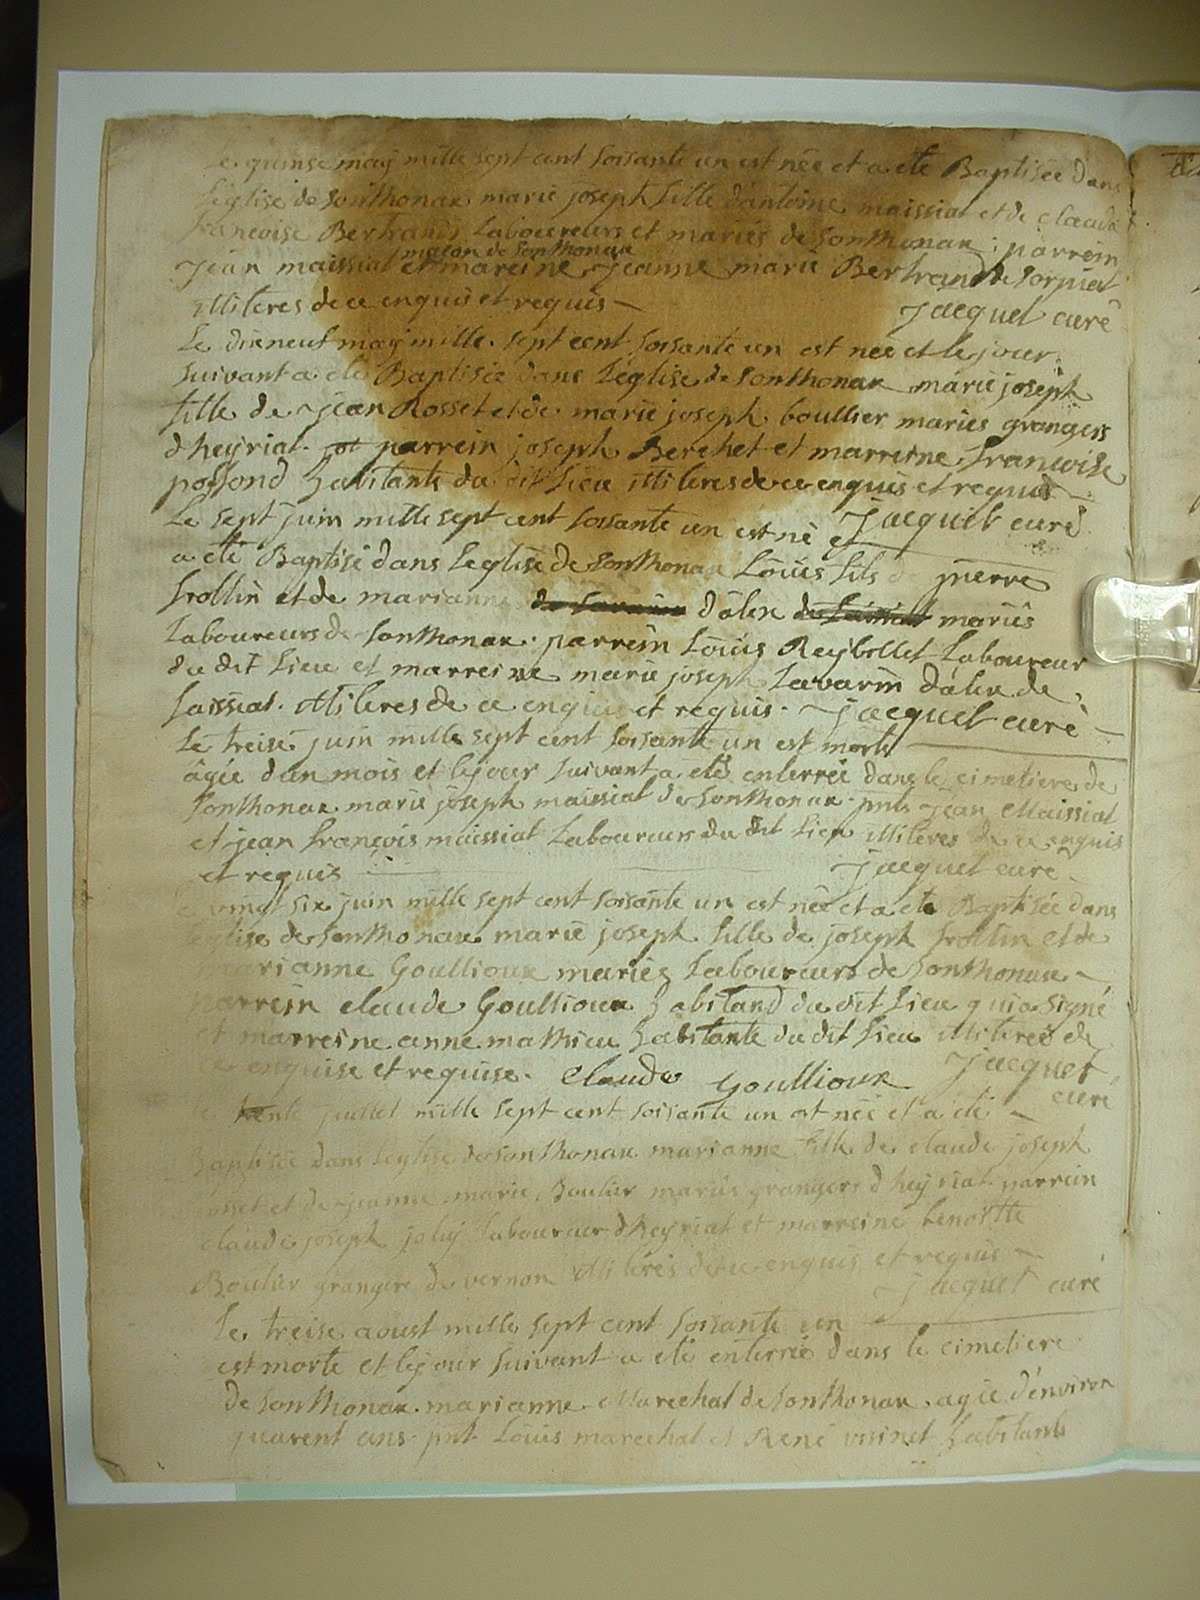 Le quinse may mille sept cent soisante un est née et a eté Baptisée dans
l'église de sonthonax marie joseph fille d'antoine maissiat et de claudi
francoise Bertrand Laboureurs et mariés de sonthonax : parrein
maçon de sonthonax
jean maissiat et mareine jeanne marie Bertrand de sorpiat
illiteres de ce enquis et requis — Jacquet curé
Le dixneuf may mille sept cent soisante un est née et le jour
suivant a eté Baptisée dans l'église de sonthonax marie joseph
fille de jean Rosset et de marie joseph boullier mariés grangers
d heyriat. parrein joseph Berchet et marreine francoise
possond habitants du dit lieu illiteres de ce enquis et requis —
Le sept juin mille sept cent soisante un est né et Jacquet curé
a eté Baptisé dans l'eglise de sonthonax Loüis fils de pierre
frollin et de marianne d'alex mariés
Laboureurs de sonthonax. parrein Loüis Reybollet Laboureur
du dit lieu et marreine marie joseph Lavarin d'alex de
saissiat. illiteres de ce enquis et requis. — Jacquet curé —
Le treise juin mille sept cent soisante un est morte
âgée d'un mois et le jour suivant a eté enterrée dans le cimetiere de
sonthonax marie joseph maissiat de sonthonax. pnts jean Maissiat
et jean françois maissiat Laboureurs du dit lieu illiteres de ce enquis
et requis — Jacquet curé
Le vingt six juin mille sept cent soisante un est née et a eté Baptisée dans
l'eglise de sonthonax marie joseph fille de joseph frollin et de
marianne Goullioux mariés Laboureurs de sonthonax —
parrein claude Goullioux habitand du dit lieu qui a signé
et marreine anne mathieu habitante du dit lieu illiteree de
ce enquise et requise. Claude Goullioux Jacquet
curé
le trente juillet mille sept cent soisante un est née et a eté —
Baptisée dans l'eglise de sonthonax marianne fille de claude joseph
et de jeanne marie Boulier mariés grangers d heyriat. parrein
claude joseph joly laboureur d heyriat et marreine benoitte
Boulier grangere de vernon illiterés de ce enquis et requis —
Jacquet curé
Le treise aoust mille sept cent soisante un
est morte et le jour suivant a eté enterrée dans le cimetiere
de sonthonax. marianne Marechal de sonthonax. agée d'environ
quarent ans. pnt Loüis marechal et René vuinet habitants